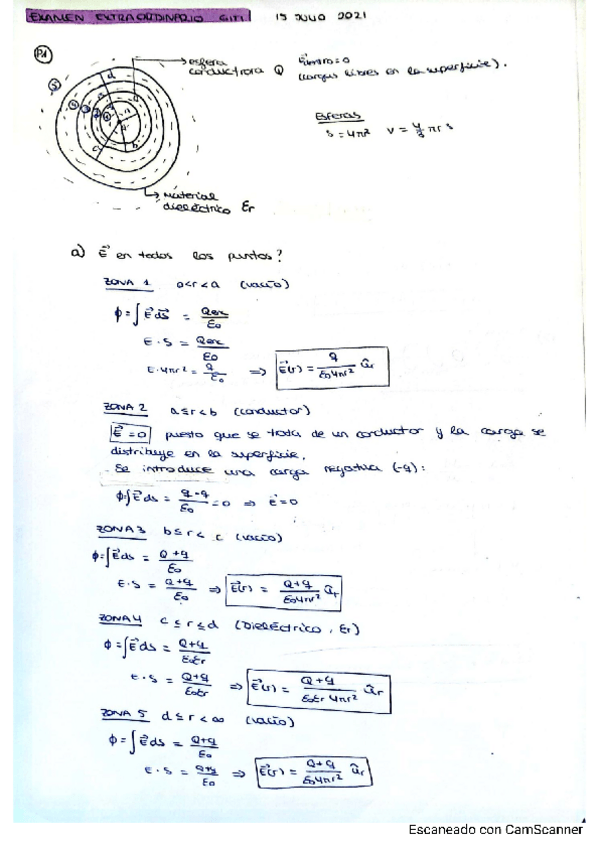 EXAMEN EXTRAORDINARIO GITI 15 JULIO 2021
P1
esfera
conductora Q
(cargas libres en la superficie).
Esferas
S = 4πr² V = 4/3 πr³
Material
dieléctrico εr
a) E⃗ en todos los puntos?
ZONA 1 0<r<a (vacío)
ϕ = ∫ E⃗ ds⃗ = Qenc/ε0
E · S = Qenc/ε0
E · 4πr² = q/ε0 ⇒ E⃗(r) = q/(ε0 4πr²) ûr
ZONA 2 a≤r<b (conductor)
E⃗ = 0 puesto que se trata de un conductor y la carga se
distribuye en la superficie.
Se introduce una carga negativa (-q):
ϕ∫ E⃗ ds = (q - q)/ε0 = 0 ⇒ E⃗ = 0
ZONA 3 b≤r< c (vacío)
ϕ = ∫ E⃗ ds = (Q + q)/ε0
E · S = (Q + q)/ε0 ⇒ E⃗(r) = (Q + q)/(ε0 4πr²) ûr
ZONA 4 c ≤ r ≤ d (Dieléctrico, εr)
ϕ = ∫ E⃗ ds = (Q + q)/(ε0 εr)
E · S = (Q + q)/(ε0 εr) ⇒ E⃗(r) = (Q + q)/(ε0 εr 4πr²) ûr
ZONA 5 d ≤ r < ∞ (vacío)
ϕ = ∫ E⃗ ds = (Q + q)/ε0
E · S = (Q + q)/ε0 ⇒ E⃗(r) = (Q + q)/(ε0 4πr²) ûr
Escaneado con CamScanner